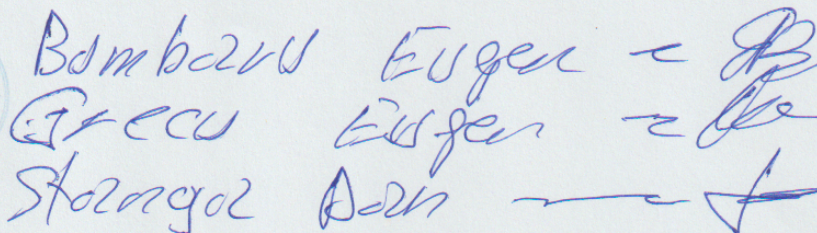 Bumbaru Eugen -
Grecu Eugen -
Stanga Dan -